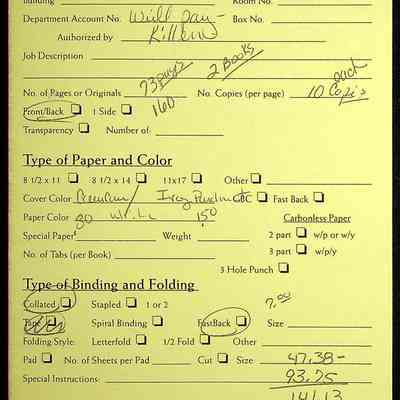 Building Room No.
Department Account No. Will pay - Box No.
Authorized by
Job Description
2 Books
73 pages each
No. of Pages or Originals 160 No. Copies (per page) 10 Copies
Front/Back 1 Side
Transparency Number of
Type of Paper and Color
8 1/2 x 11 8 1/2 x 14 11x17 Other
Cover Color Ivory GBC Fast Back
Paper Color 20 White 150 Carbonless Paper
Special Paper Weight 2 part w/p or w/y
No. of Tabs (per Book) 3 part w/p/y
3 Hole Punch
Type of Binding and Folding
Collated Stapled 1 or 2 7.00
Tape Spiral Binding FastBack Size
Folding Style: Letterfold 1/2 Fold Other
Pad No. of Sheets per Pad Cut Size 47.38-
Special Instructions: 93.75
141.13